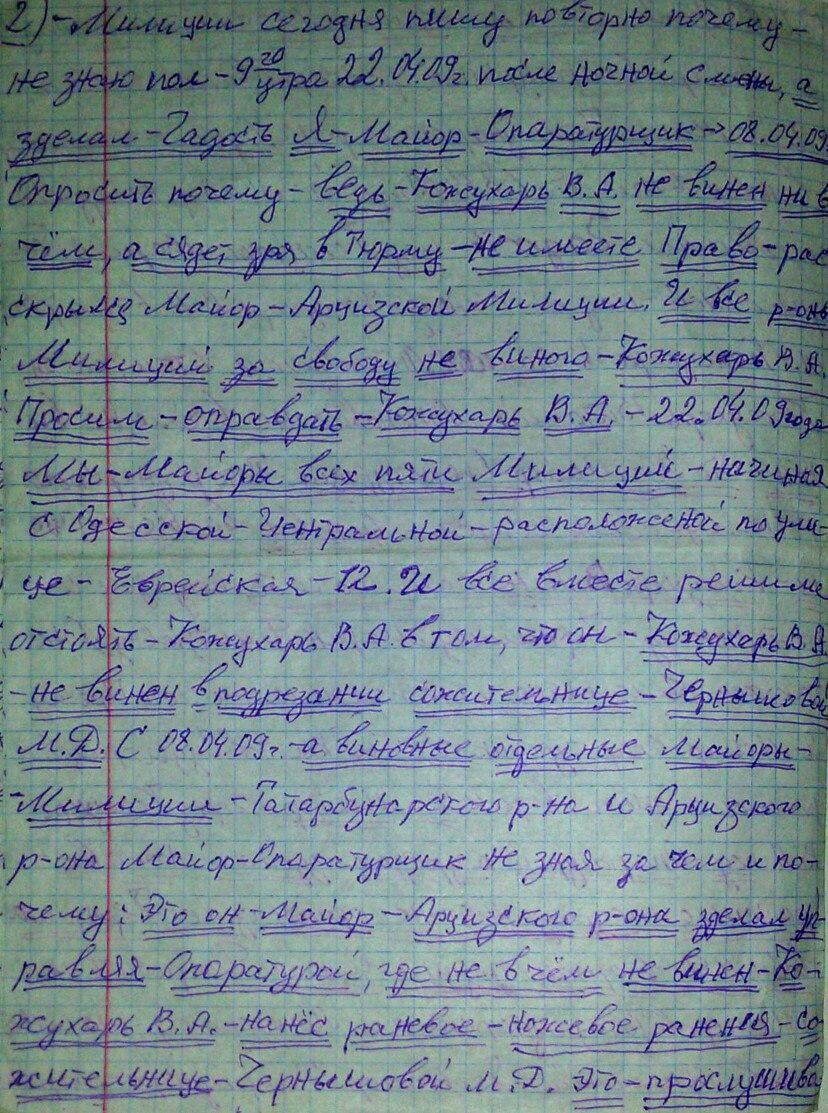 2)-Милиции сегодня пишу повторно почему-
не знаю пол-9го утра 22.04.09г. после ночной смены, а
зделал-Гадость Я-Майор-Опаратурщик→08.04.09
Опросить почему-ведь-Кожухарь В.А. не винен ни в
чём, а сядет зря в Тюрму-не имеете Право-рас
скрылся Майор-Арцизской Милиции. И все р-оны
Милиций за свободу не виного-Кожухарь В.А.
Просим-оправдать-Кожухарь В.А.-22.04.09года
Мы-Майоры всех пяти Милиций-начиная
с Одесской-Центральной-расположеной по ули-
це-Еврейская-12. И все вместе решили
отстоять-Кожухарь В.А. в том, что он-Кожухарь В.А.
-не винен в подрезании сожительнице-Чернышовой
М.Д. С 08.04.09г.-а виновные отдельные Майоры-
-Милиции-Татарбунарского р-на и Арцизского
р-она Майор-Опаратурщик не зная за чем и по-
чему: Это он-Майор-Арцизского р-она зделал уп-
равляя-Опаратурой, где не в чём не винен-Ко-
жухарь В.А.-нанёс раневое-ножевое ранения-со
жительнице-Чернышовой М.Д. Это-прослушива